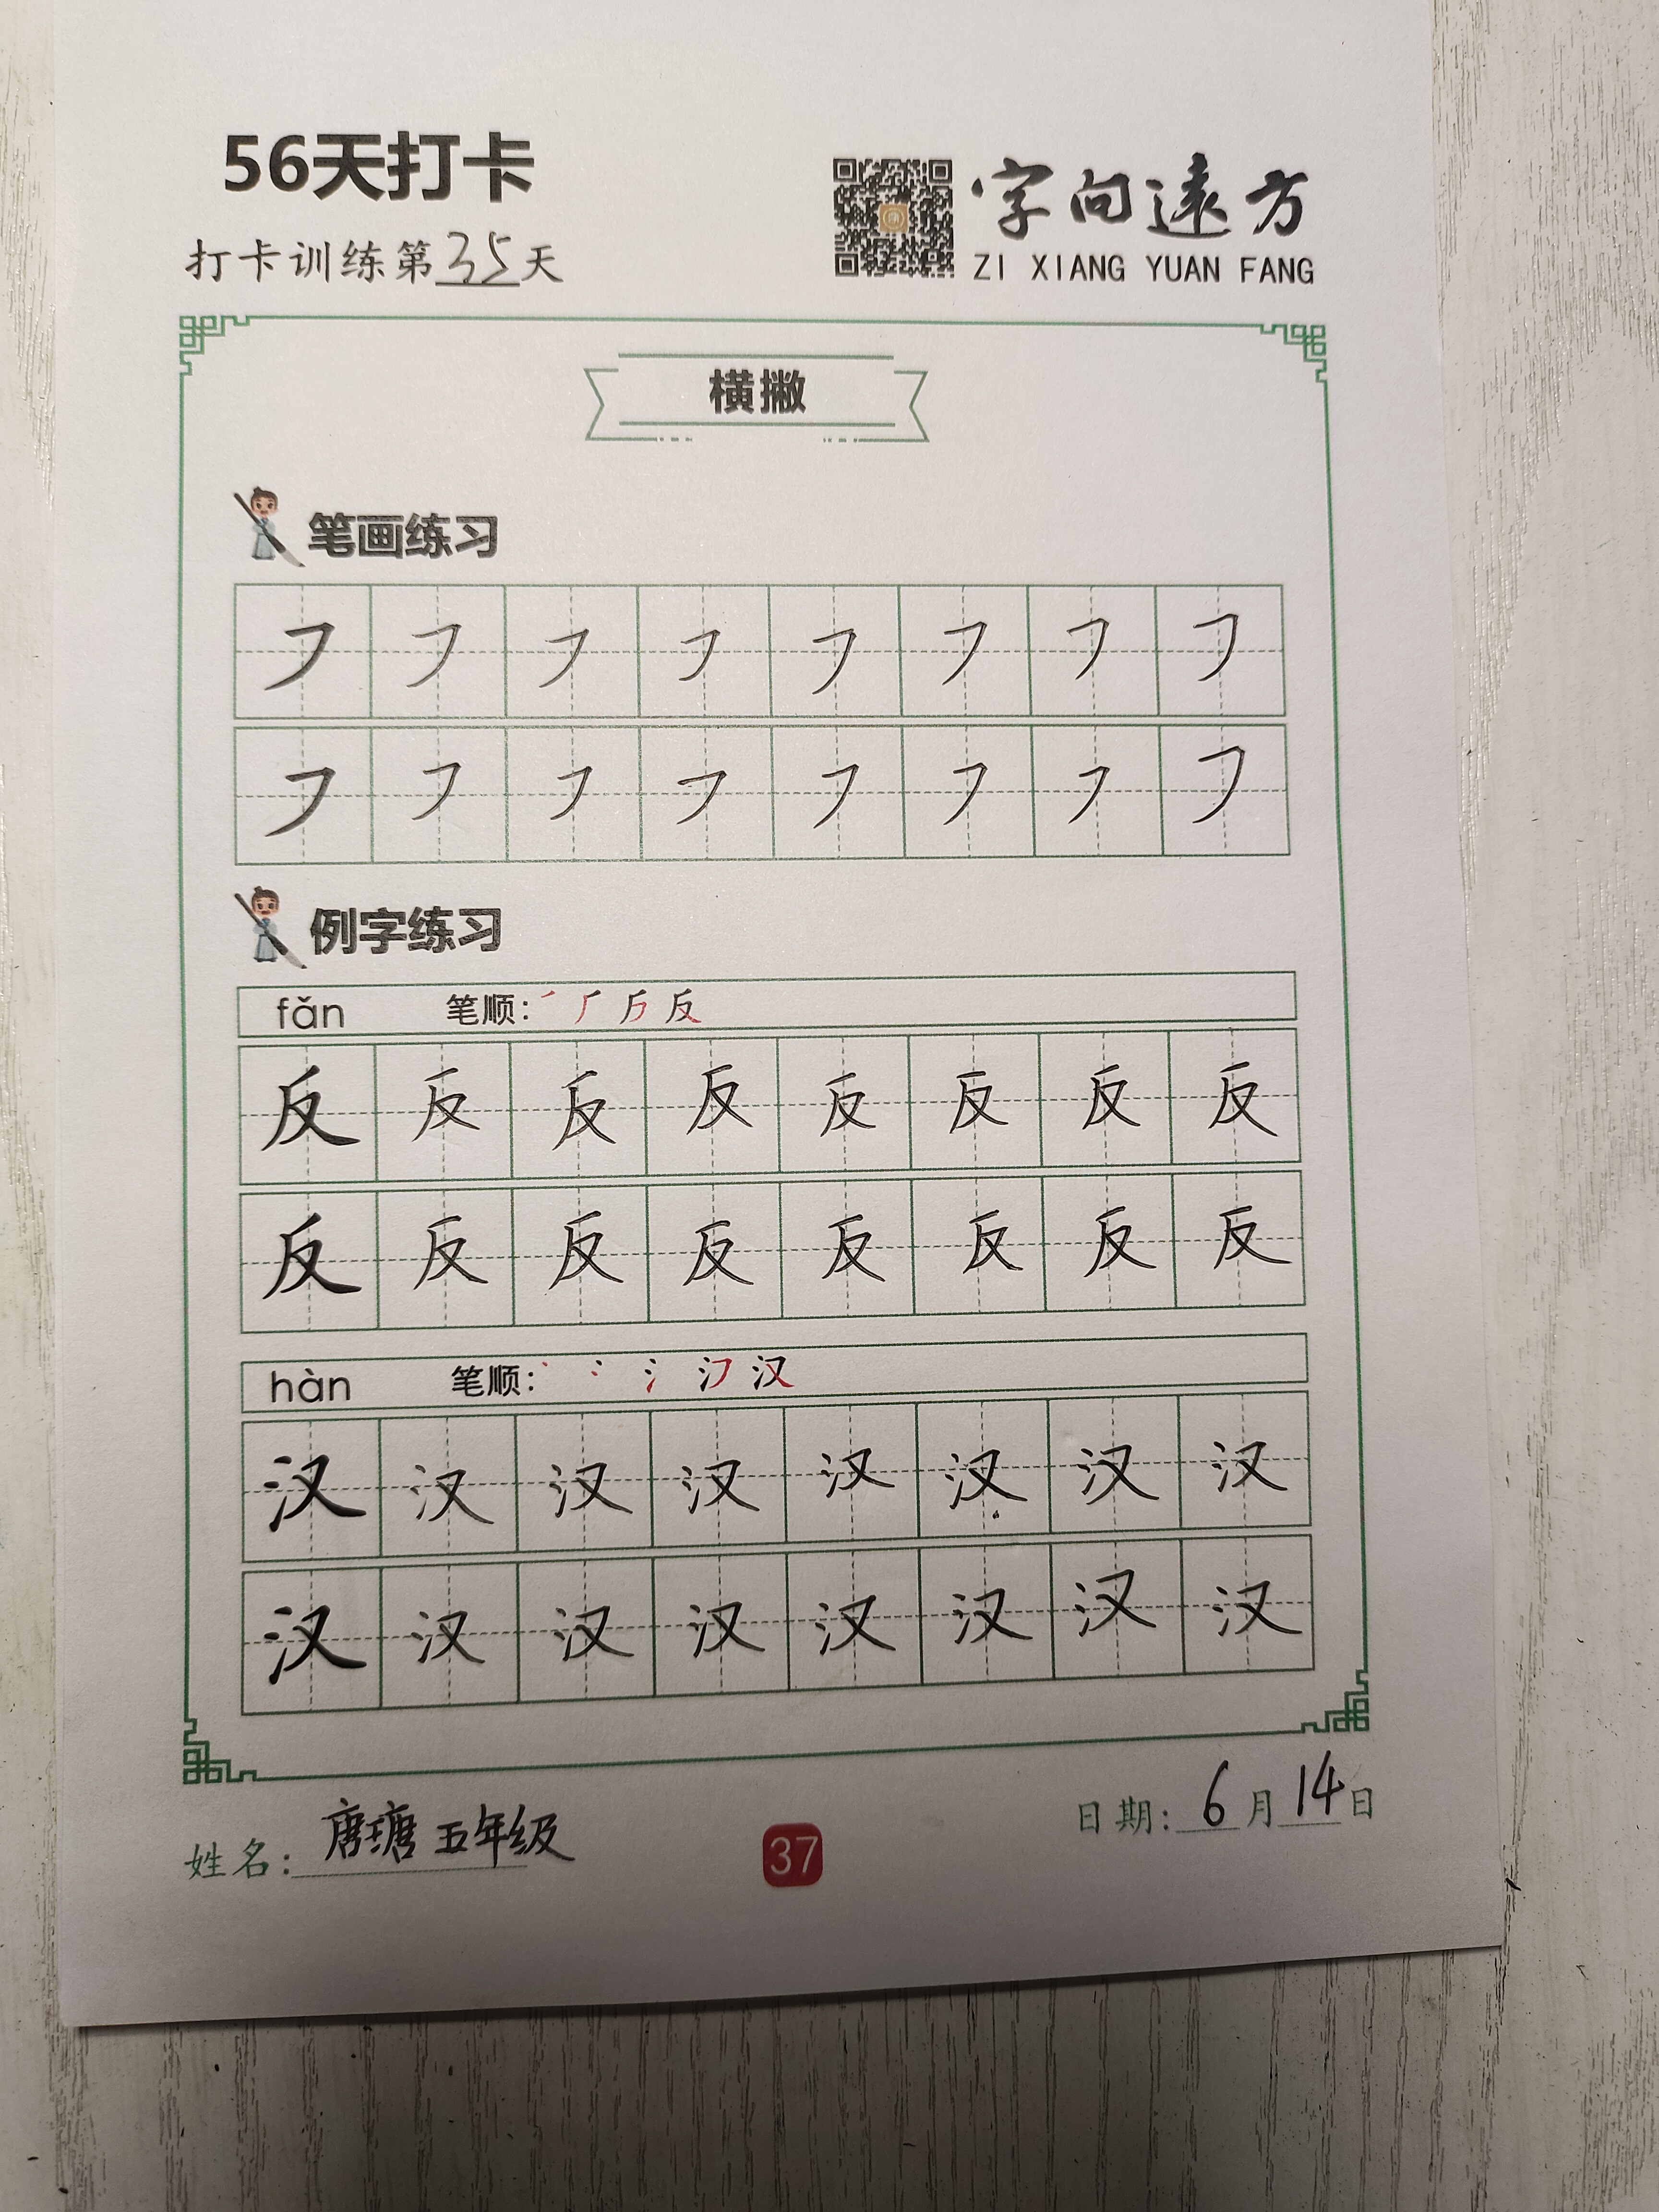 56天打卡
打卡训练第35天
字向远方
ZI XIANG YUAN FANG
横撇
笔画练习
㇇ ㇇ ㇇ ㇇ ㇇ ㇇ ㇇ ㇇
㇇ ㇇ ㇇ ㇇ ㇇ ㇇ ㇇ ㇇
例字练习
fǎn 笔顺: 反
反 反 反 反 反 反 反 反
反 反 反 反 反 反 反 反
hàn 笔顺: 氵 汉
汉 汉 汉 汉 汉 汉 汉 汉
汉 汉 汉 汉 汉 汉 汉 汉
姓名: 唐瑭 五年级
37
日期: 6月14日